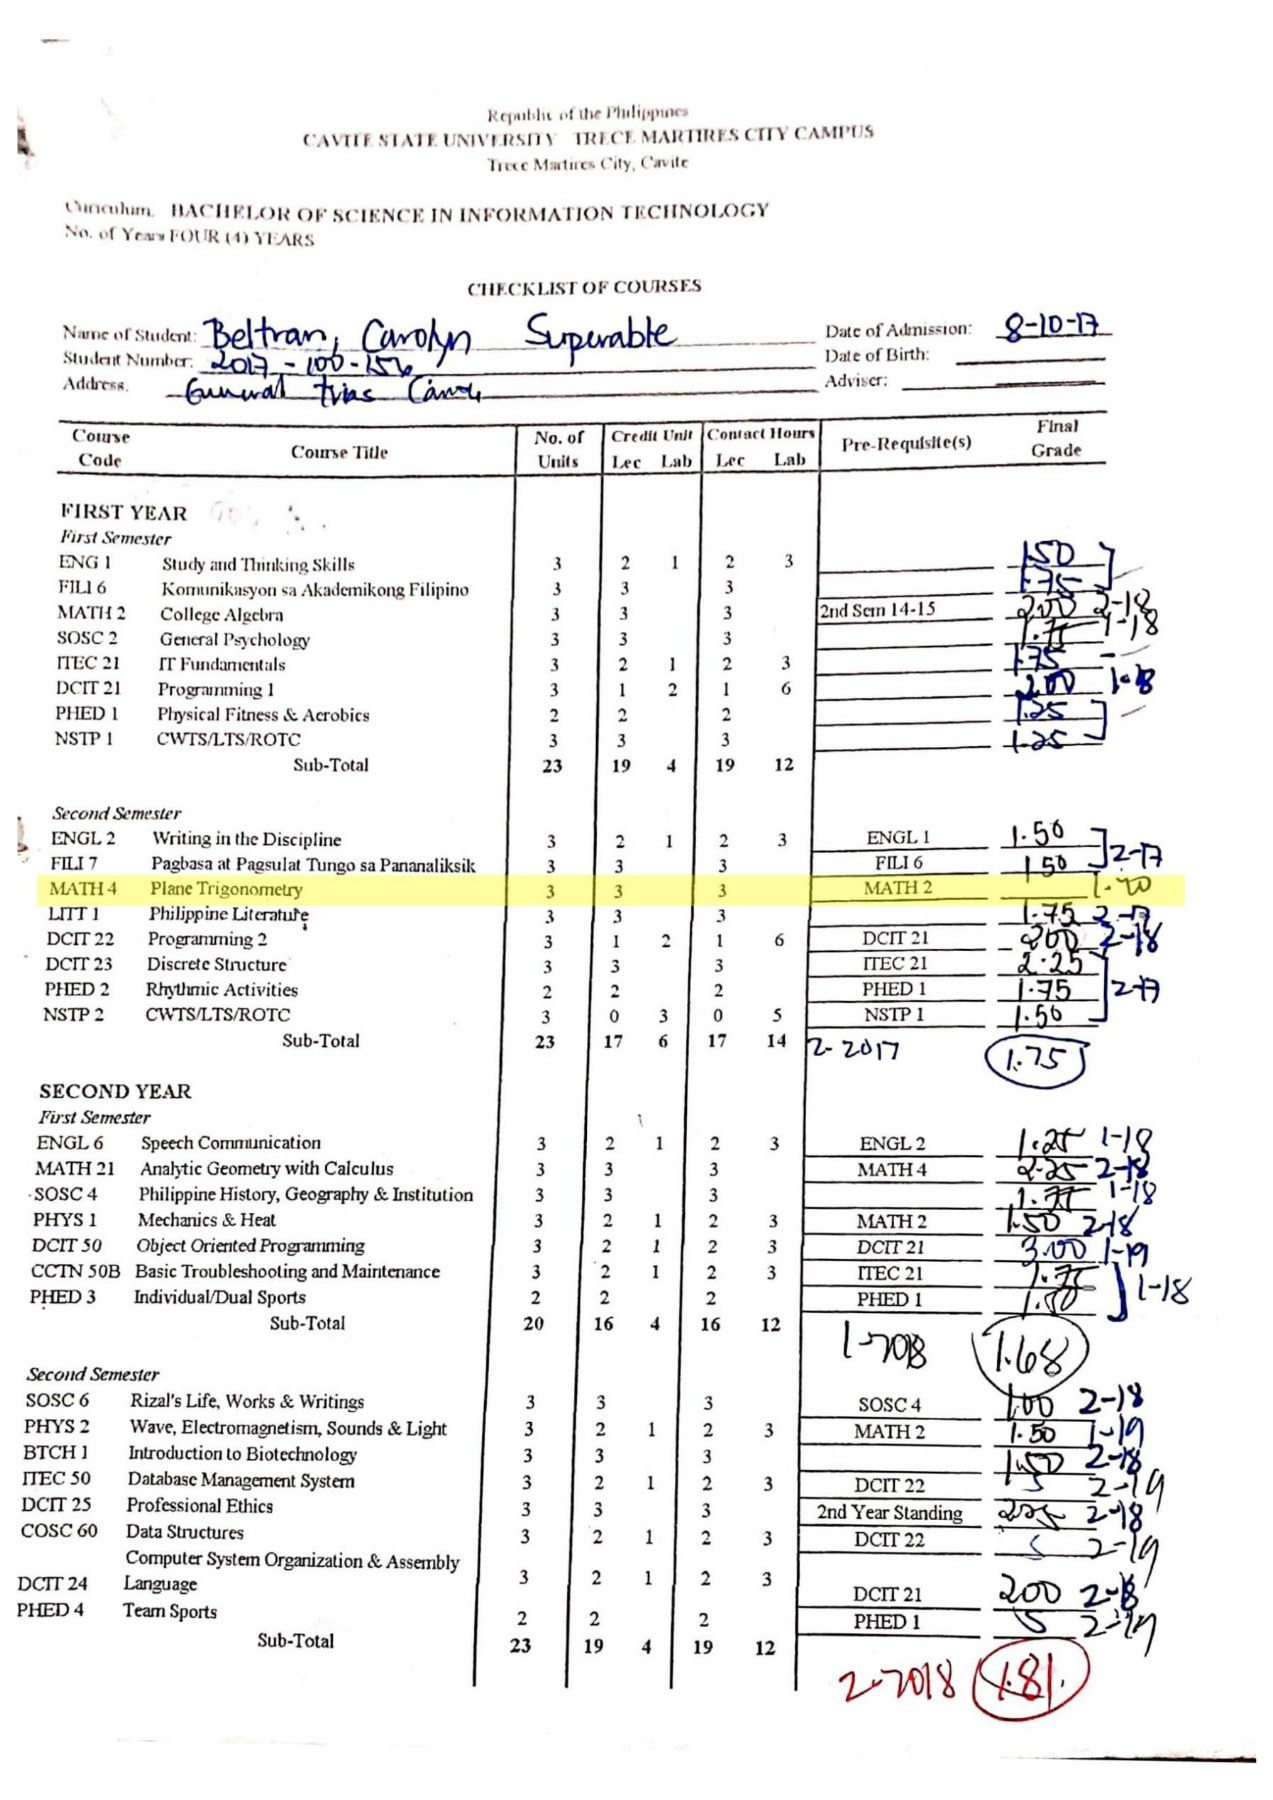 Republic of the Philippines
CAVITE STATE UNIVERSITY TRECE MARTIRES CITY CAMPUS
Trece Martires City, Cavite
Curiculum. BACHELOR OF SCIENCE IN INFORMATION TECHNOLOGY
No. of Years FOUR (4) YEARS
CHECKLIST OF COURSES
Name of Student: Beltran, Carolyn Superable Date of Admission: 8-10-17
Student Number: 2017-100-156 Date of Birth:
Address. General Trias Cavite Adviser:
Course Code Course Title No. of Units Credit Unit Lec Lab Contact Hours Lec Lab Pre-Requisite(s) Final Grade
FIRST YEAR
First Semester
ENG 1 Study and Thinking Skills 3 2 1 2 3 1.50
FILI 6 Komunikasyon sa Akademikong Filipino 3 3 3 1.75
MATH 2 College Algebra 3 3 3 2nd Sem 14-15 2.00 2-18
SOSC 2 General Psychology 3 3 3 1.75 1-18
ITEC 21 IT Fundamentals 3 2 1 2 3 1.75
DCIT 21 Programming 1 3 1 2 1 6 2.00 1-18
PHED 1 Physical Fitness & Aerobics 2 2 2 1.25
NSTP 1 CWTS/LTS/ROTC 3 3 3 1.25
Sub-Total 23 19 4 19 12
Second Semester
ENGL 2 Writing in the Discipline 3 2 1 2 3 ENGL 1 1.50
FILI 7 Pagbasa at Pagsulat Tungo sa Pananaliksik 3 3 3 FILI 6 1.50 2-17
MATH 4 Plane Trigonometry 3 3 3 MATH 2
LITT 1 Philippine Literature 3 3 3 1.75 2-17
DCIT 22 Programming 2 3 1 2 1 6 DCIT 21 200 2-18
DCIT 23 Discrete Structure 3 3 3 ITEC 21 2.25
PHED 2 Rhythmic Activities 2 2 2 PHED 1 1.75 2-17
NSTP 2 CWTS/LTS/ROTC 3 0 3 0 5 NSTP 1 1.50
Sub-Total 23 17 6 17 14 2-2017 1.75
SECOND YEAR
First Semester
ENGL 6 Speech Communication 3 2 1 2 3 ENGL 2 1.25 1-18
MATH 21 Analytic Geometry with Calculus 3 3 3 MATH 4 2.25 2-18
SOSC 4 Philippine History, Geography & Institution 3 3 3 1.75 1-18
PHYS 1 Mechanics & Heat 3 2 1 2 3 MATH 2 1.50 2-18
DCIT 50 Object Oriented Programming 3 2 1 2 3 DCIT 21 3.00 1-19
CCTN 50B Basic Troubleshooting and Maintenance 3 2 1 2 3 ITEC 21 1.75
PHED 3 Individual/Dual Sports 2 2 2 PHED 1 1.50 1-18
Sub-Total 20 16 4 16 12
1-2018 1.68
Second Semester
SOSC 6 Rizal's Life, Works & Writings 3 3 3 SOSC 4 1.00 2-18
PHYS 2 Wave, Electromagnetism, Sounds & Light 3 2 1 2 3 MATH 2 1.50 1-19
BTCH 1 Introduction to Biotechnology 3 3 3 1.50 2-18
ITEC 50 Database Management System 3 2 1 2 3 DCIT 22 S 2-19
DCIT 25 Professional Ethics 3 3 3 2nd Year Standing 2.25 2-18
COSC 60 Data Structures 3 2 1 2 3 DCIT 22 S 2-19
Computer System Organization & Assembly
DCIT 24 Language 3 2 1 2 3 DCIT 21 200 2-18
PHED 4 Team Sports 2 2 2 PHED 1 S 2-19
Sub-Total 23 19 4 19 12
2-2018 1.81